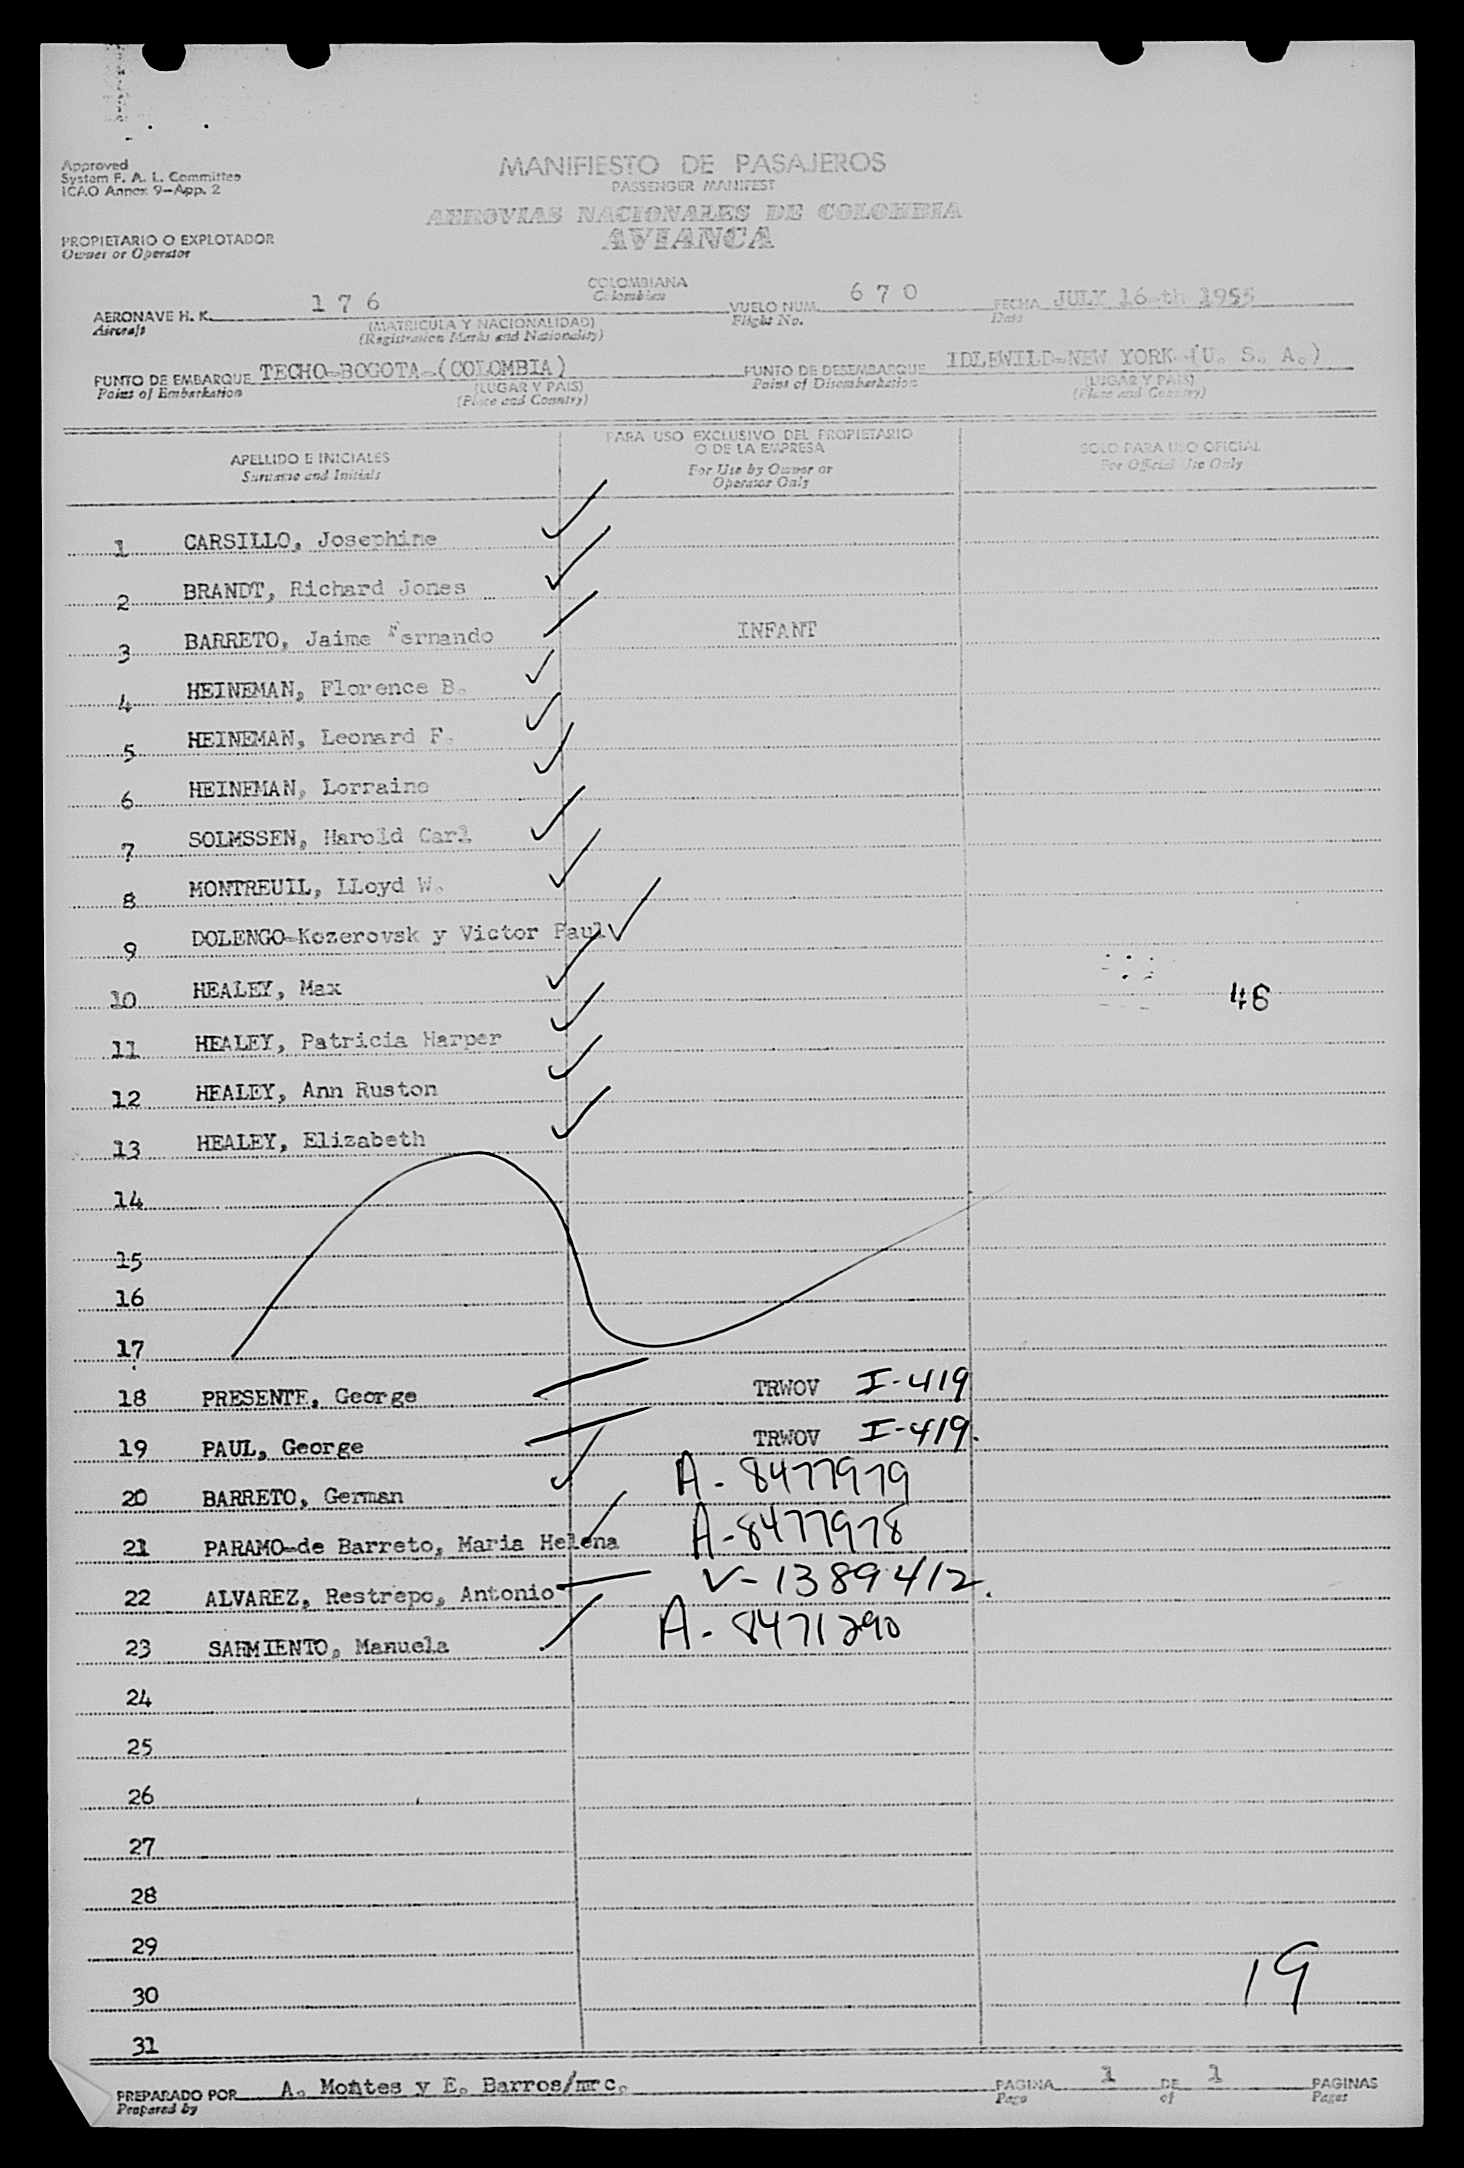 Approved
System F. A. L. Committee
ICAO Annex 9-App. 2
MANIFIESTO DE PASAJEROS
PASSENGER MANIFEST
AEROVIAS NACIONALES DE COLOMBIA
AVIANCA
PROPIETARIO O EXPLOTADOR
Owner or Operator
COLOMBIANA
Colombian
AERONAVE H. K. 176 VUELO NUM. 670 FECHA JULY 16-th 1955
Aircraft (MATRICULA Y NACIONALIDAD) Flight No. Date
(Registration Marks and Nationality)
PUNTO DE EMBARQUE TECHO-BOGOTA-(COLOMBIA) PUNTO DE DESEMBARQUE IDLEWILD-NEW YORK-(U. S. A.)
Point of Embarkation (LUGAR Y PAIS) Point of Disembarkation (LUGAR Y PAIS)
(Place and Country) (Place and Country)
APELLIDO E INICIALES PARA USO EXCLUSIVO DEL PROPIETARIO O DE LA EMPRESA SOLO PARA USO OFICIAL
Surname and Initials For Use by Owner or Operator Only For Official Use Only
1 CARSILLO, Josephine
2 BRANDT, Richard Jones
3 BARRETO, Jaime Fernando INFANT
4 HEINEMAN, Florence B.
5 HEINEMAN, Leonard F.
6 HEINEMAN, Lorraine
7 SOLMSSEN, Harold Carl
8 MONTREUIL, LLoyd W.
9 DOLENGO-Kozerovsk y Victor Paul
10 HEALEY, Max 48
11 HEALEY, Patricia Harper
12 HEALEY, Ann Ruston
13 HEALEY, Elizabeth
14
15
16
17
18 PRESENTE, George TRWOV I-419
19 PAUL, George TRWOV I-419.
20 BARRETO, German A-8477979
21 PARAMO-de Barreto, Maria Helena A-8477978
22 ALVAREZ, Restrepo, Antonio V-1389412.
23 SARMIENTO, Manuela A-8471290
24
25
26
27
28
29
30 19
31
PREPARADO POR A. Montes y E. Barros/mrc. PAGINA 1 DE 1 PAGINAS
Prepared by Page of Pages